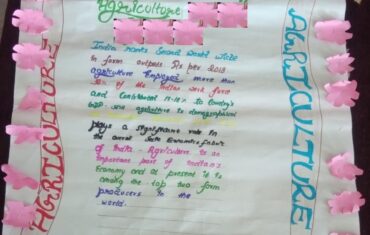 Agriculture
India ranks Second world wide
in form outputs. As per 2018
agriculture employed more than
50% of the Indian work force
and Contributed 17-18% to Country's
GDP.
plays a significant role in
the overall Socio Economic fabric
of India. Agriculture is an
important part of India's
Economy and at present it is
among the top two form
producers in the
world.
AGRICULTURE
AGRICULTURE